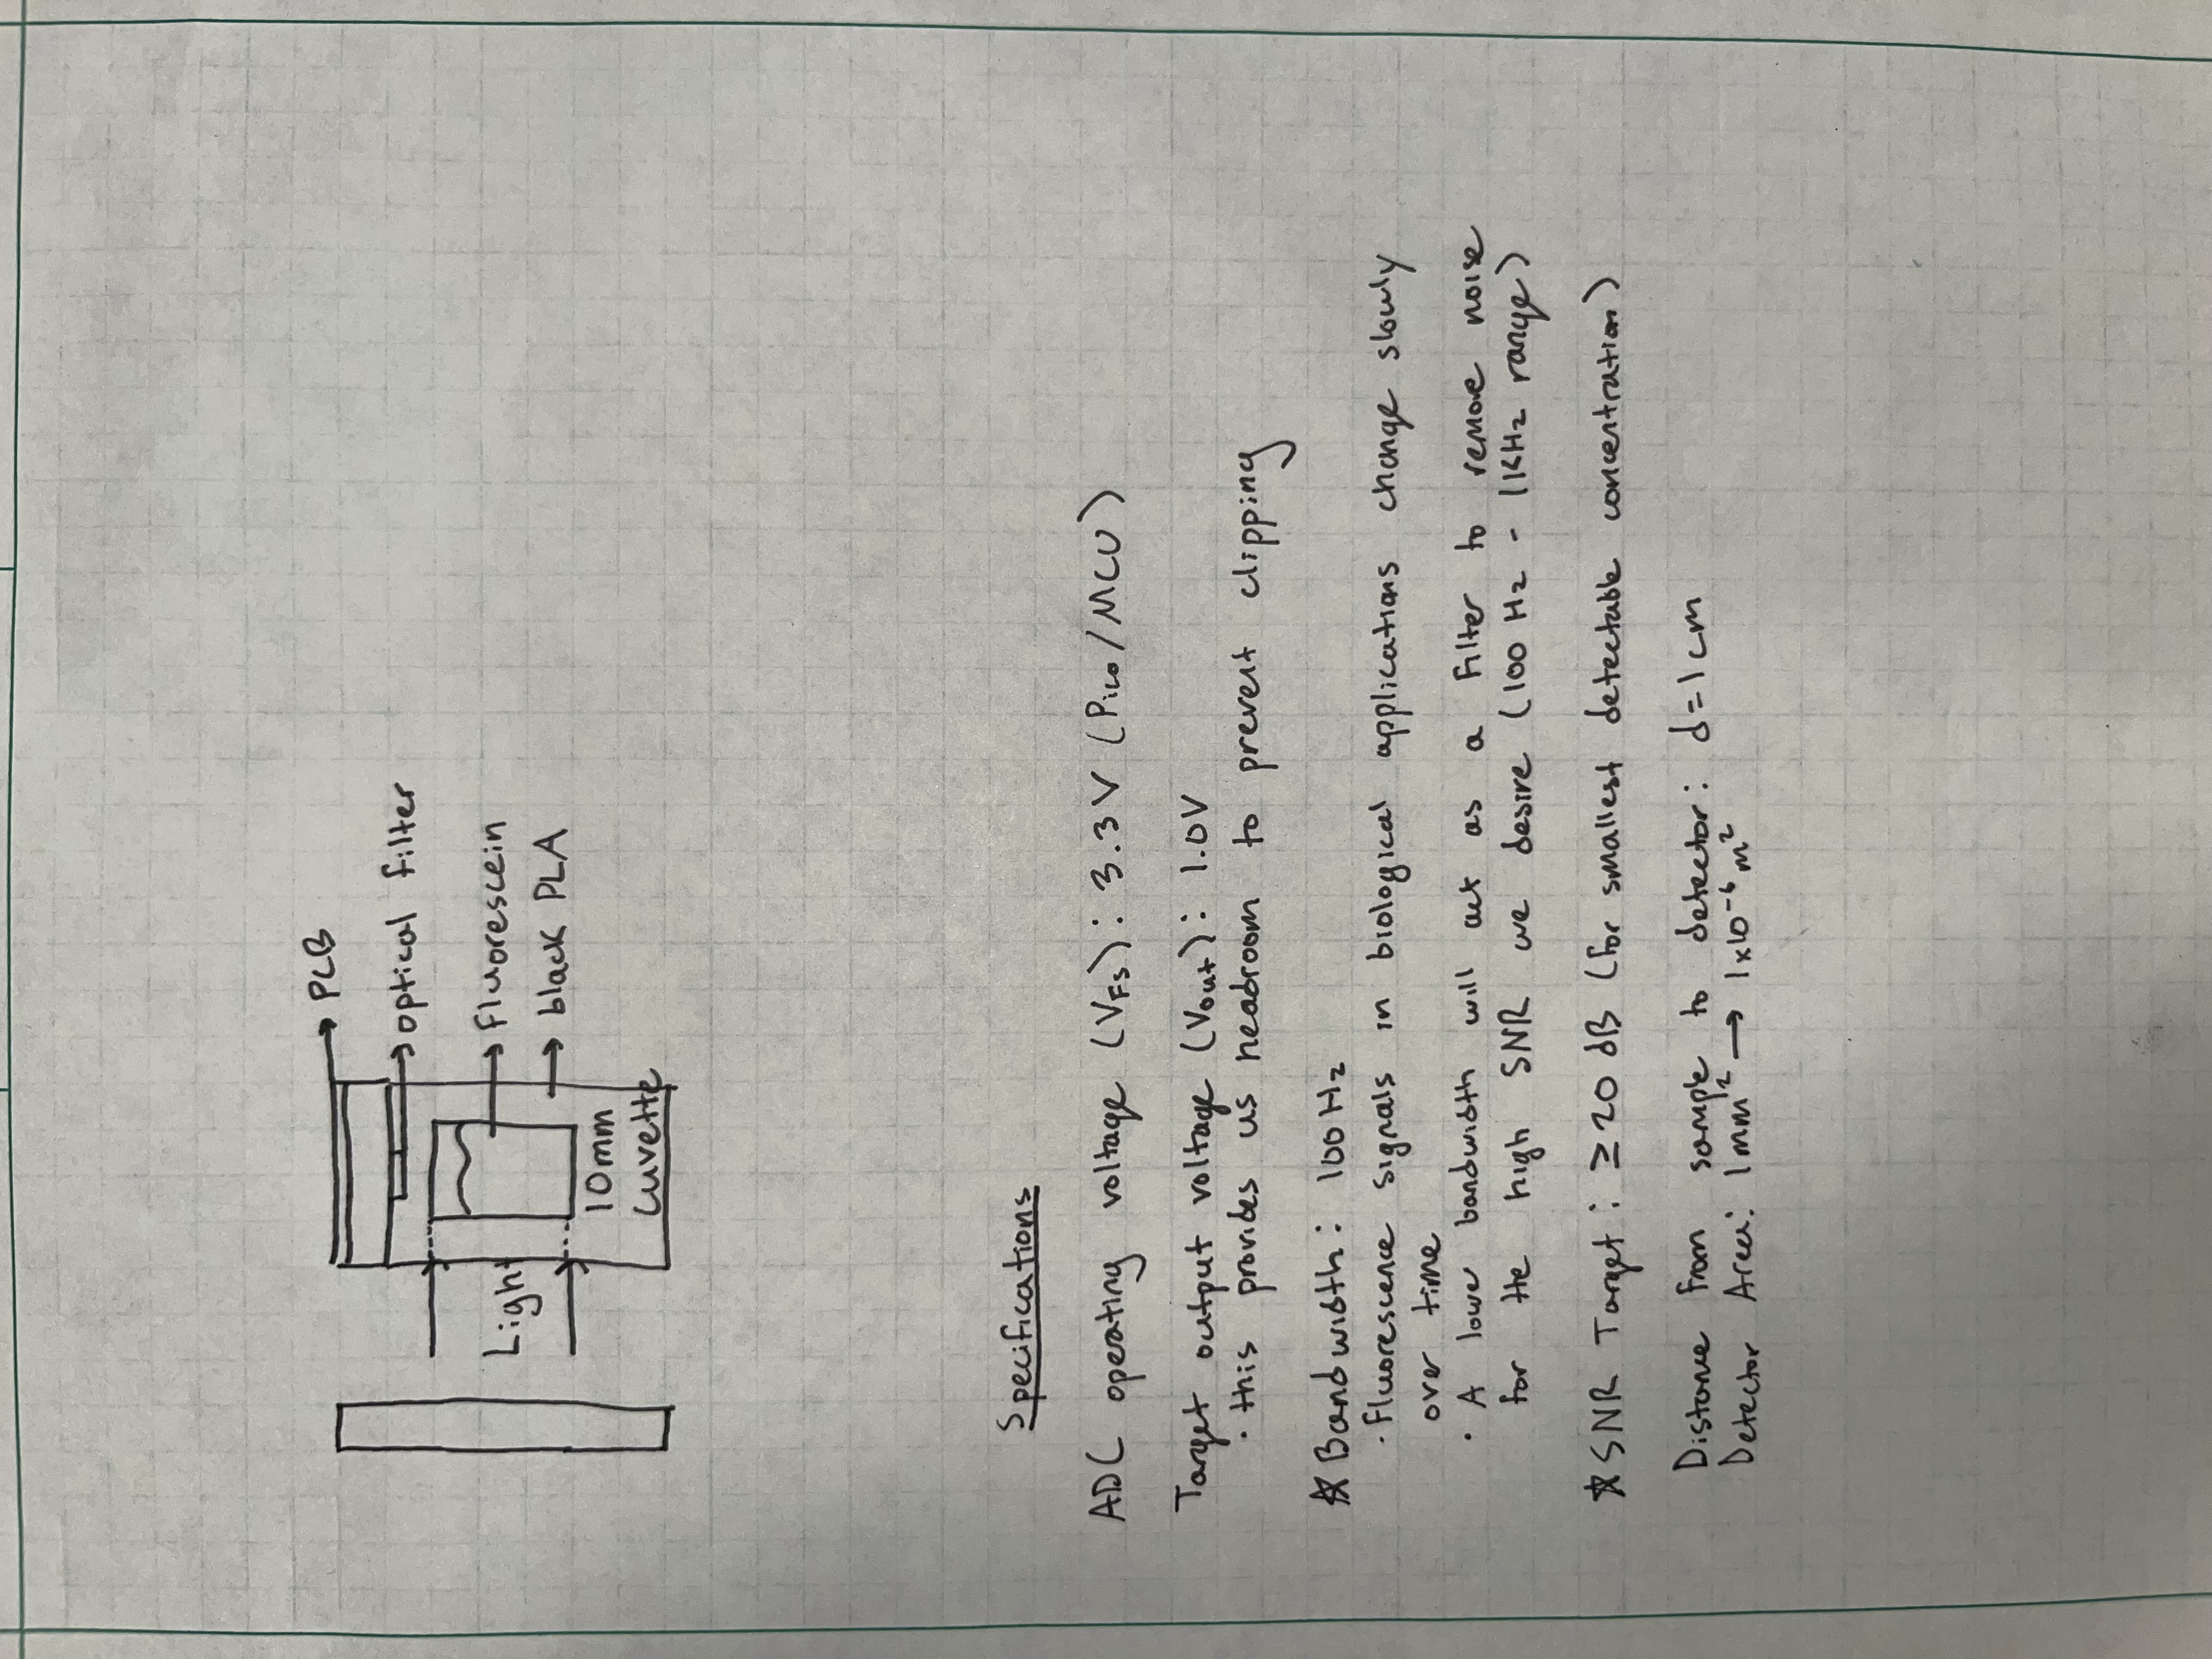 PCB
optical filter
Light
fluorescein
black PLA
10mm
Cuvette
Specifications
ADC operating voltage (VFS): 3.3V (Pico/MCU)
Target output voltage (Vout): 1.0V
· this provides us headroom to prevent clipping
☆ Bandwidth: 100 Hz
· Fluorescence signals in biological applications change slowly
over time
· A lower bandwidth will act as a filter to remove noise
for the high SNR we desire (100 Hz - 1KHz range)
☆ SNR Target: ≥20 dB (for smallest detectable concentration)
Distance from sample to detector: d=1cm
Detector Area: 1mm² → 1x10⁻⁶ m²